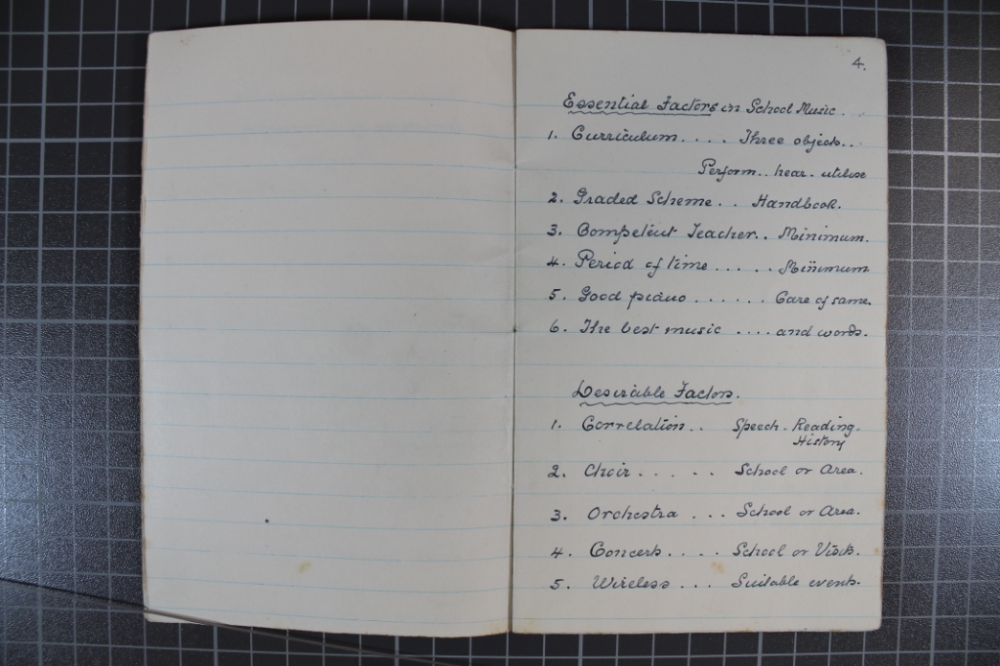 4.
Essential Factors in School Music.
1. Curriculum .... Three objects..
Perform.. hear. utilise
2. Graded Scheme .. Handbook.
3. Competent Teacher.. Minimum.
4. Period of time ..... Minimum
5. Good piano ...... Care of same.
6. The best music .... and words.
Desirable Factors.
1. Correlation.. Speech. Reading.
History
2. Choir ..... School or Area.
3. Orchestra ... School or Area.
4. Concerts .... School or Visits.
5. Wireless ... Suitable events.